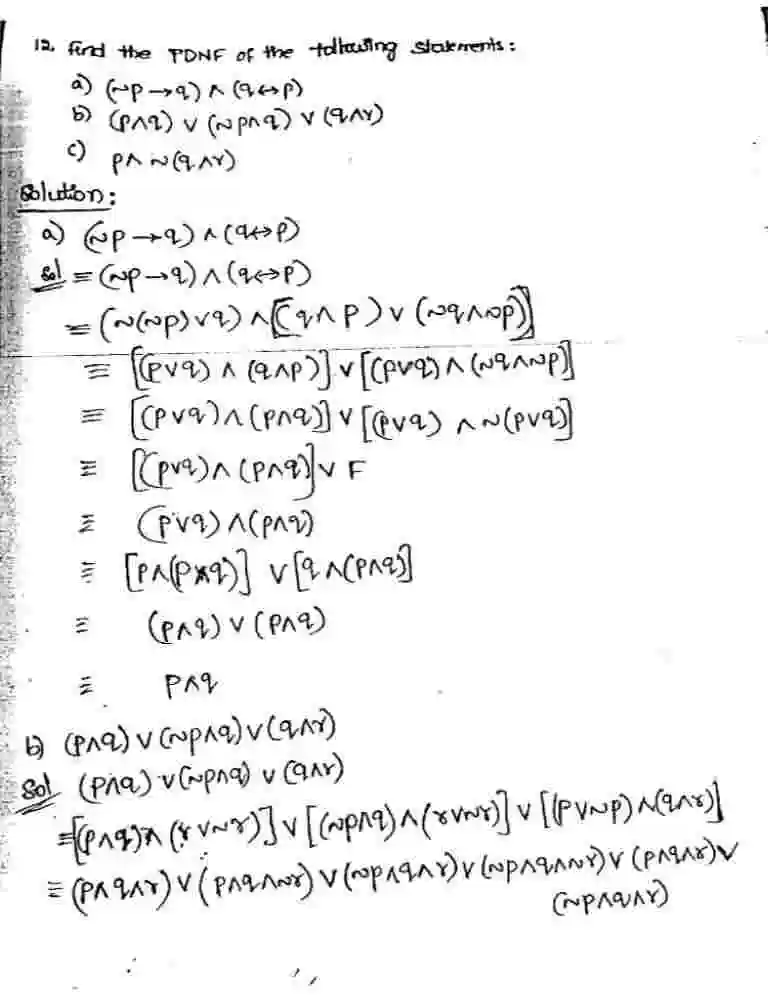 12. find the PDNF of the following statements:
a) (~p→q) ∧ (q↔p)
b) (p∧q) ∨ (~p∧q) ∨ (q∧r)
c) p∧ ~(q∧r)
Solution:
a) (~p→q) ∧ (q↔p)
Sol ≡ (~p→q) ∧ (q↔p)
≡ (~(~p)∨q) ∧ [(q∧p) ∨ (~q∧~p)]
≡ [(p∨q) ∧ (q∧p)] ∨ [(p∨q) ∧ (~q∧~p)]
≡ [(p∨q) ∧ (p∧q)] ∨ [(p∨q) ∧ ~(p∨q)]
≡ [(p∨q) ∧ (p∧q)] ∨ F
≡ (p∨q) ∧ (p∧q)
≡ [p∧(p∧q)] ∨ [q∧(p∧q)]
≡ (p∧q) ∨ (p∧q)
≡ p∧q
b) (p∧q) ∨ (~p∧q) ∨ (q∧r)
Sol (p∧q) ∨ (~p∧q) ∨ (q∧r)
≡ [(p∧q) ∧ (r∨~r)] ∨ [(~p∧q) ∧ (r∨~r)] ∨ [(p∨~p) ∧ (q∧r)]
≡ (p∧q∧r) ∨ (p∧q∧~r) ∨ (~p∧q∧r) ∨ (~p∧q∧~r) ∨ (p∧q∧r) ∨
(~p∧q∧r)